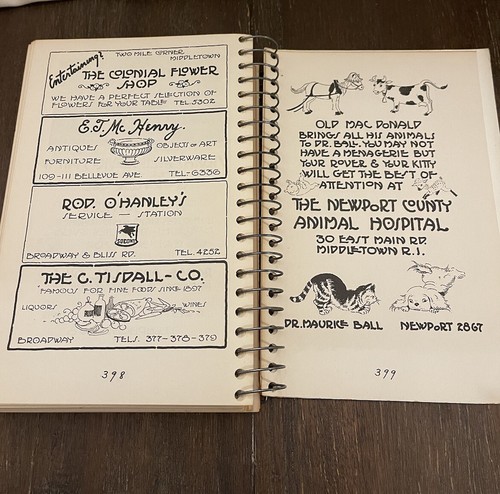 Entertaining?
TWO MILE CORNER
MIDDLETOWN
THE COLONIAL FLOWER
SHOP
WE HAVE A PERFECT SELECTION OF
FLOWERS FOR YOUR TABLE TEL 5302
E.T. Mc Henry.
ANTIQUES OBJECTS OF ART
FURNITURE SILVERWARE
109-111 BELLEVUE AVE. TEL-6336
ROD. O'HANLEY'S
SERVICE - STATION
BROADWAY & BLISS RD. TEL. 4252
THE C. TISDALL-CO.
"FAMOUS FOR FINE FOODS SINCE 1897"
LIQUORS WINES
BROADWAY TELS. 377-378-379
398
OLD MAC DONALD
BRINGS ALL HIS ANIMALS
TO DR. BALL. YOU MAY NOT
HAVE A MENAGERIE BUT
YOUR ROVER & YOUR KITTY
WILL GET THE BEST OF
ATTENTION AT
THE NEWPORT COUNTY
ANIMAL HOSPITAL
30 EAST MAIN RD.
MIDDLETOWN R.I.
DR. MAURICE BALL NEWPORT 2867
399